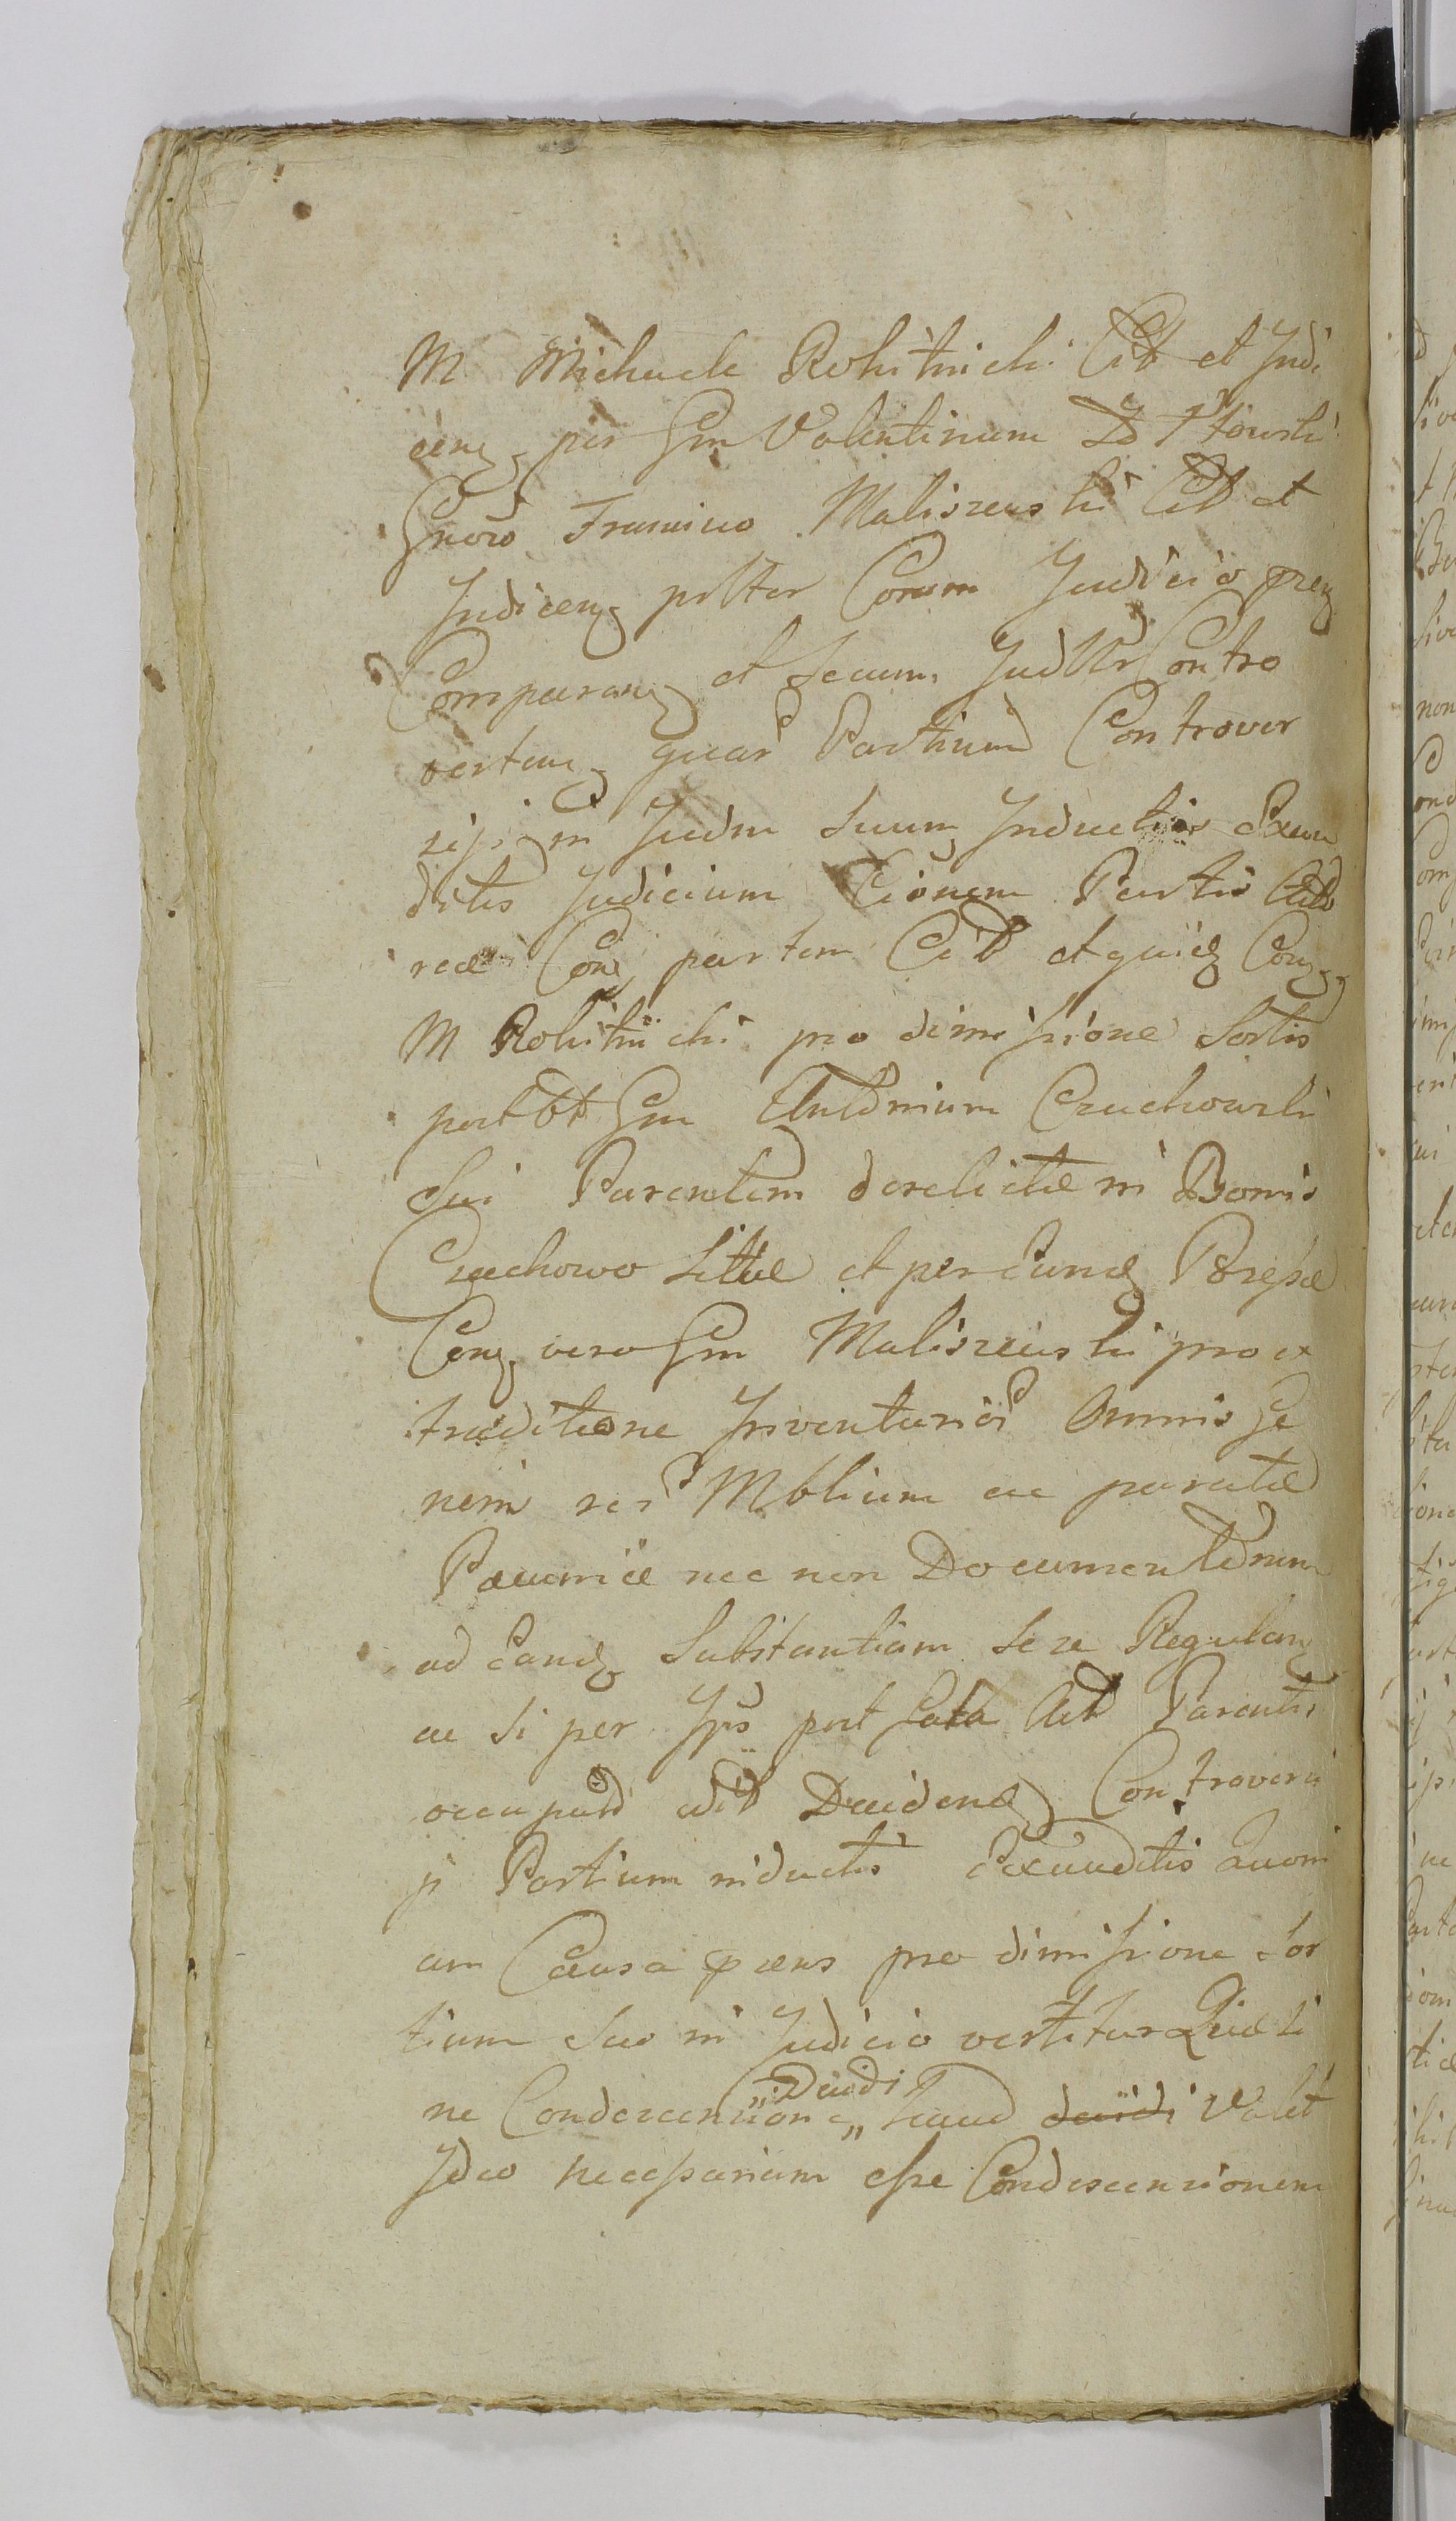 M. Michaele Rokitnicki Citt et Judi
cem per Gm Valentinum
Gnoso Francisco Maliszewski Citt et
Judicem pstter Coram Judicio pren
Comparan et secum Judttr Contro
verten quar Partium Controver
sijs in Judm Suum Inductis Exau
ditis Judicium Ctionem Partis Acto
reae Con partem Citt et quid Con
M Rokitnicki pro dimissione Sortis
post btt Gm Antonium Czachowski
Sui Parentem derelictae in Bonis
Czachowo sittae et per eund Possessae
Con vero Gm Maliszewski pro ex
traditione Inventarior Omnis Ge
neris rer Mblium ac paratae
Pecuniae nec non Documentorum
ad eand Substantiam Sese Regulan
ac si per Ips post fata Act Parentis
occupator Decidend Controversi
js Partium inductis Exauditis Quoni
am Causa praens pro dimissione Sor
tium Suo in Judicio vertitur Quae si
ne Condescensione „ Decidi „ haud decidi valet
Ideo necessariam esse Condescensionem